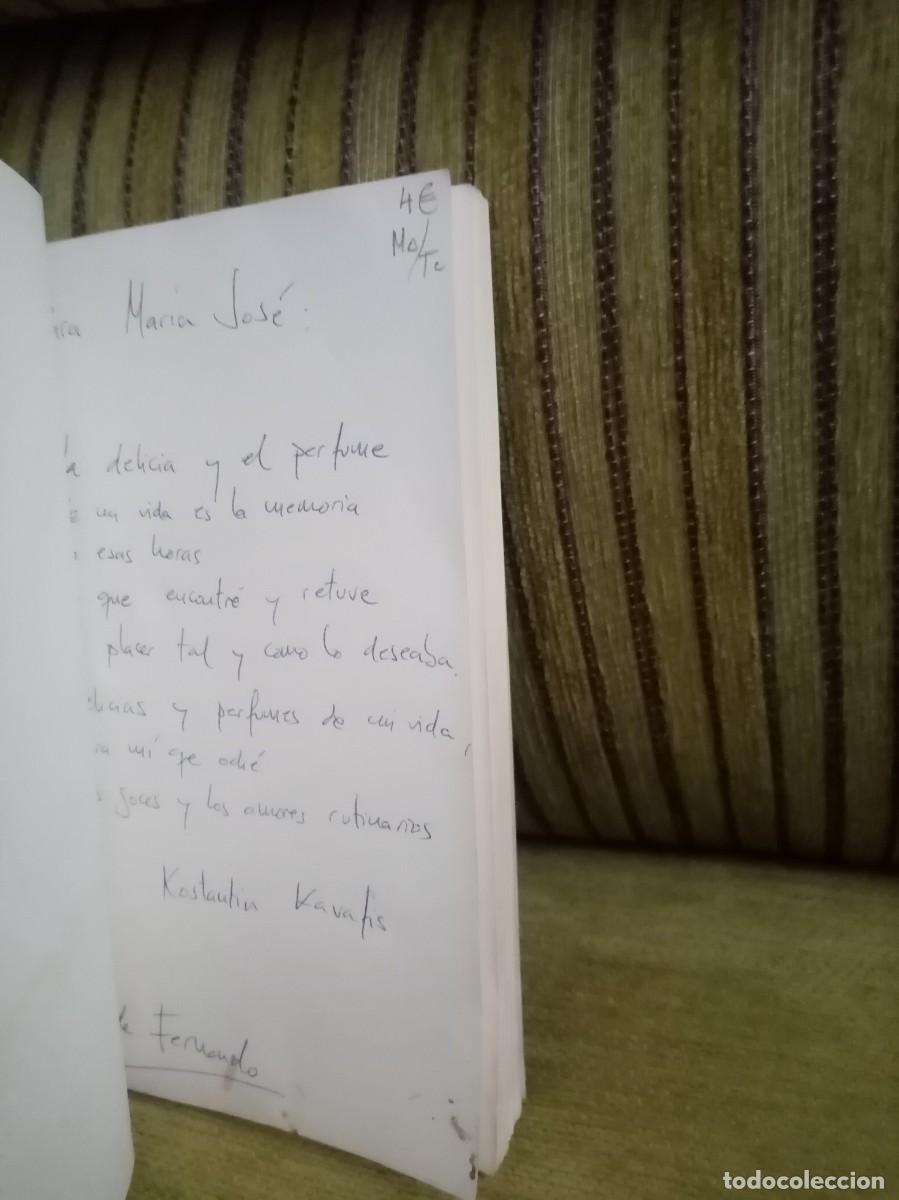 4€
Mo/Tc
María José:
delicia y el perfume
mi vida es la memoria
esas horas
que encontré y retuve
placer tal y como lo deseaba.
y perfumes de mi vida,
mí qe odié
goces y los amores rutinarios
Kostantin Kavafis
de Fernando
todocoleccion